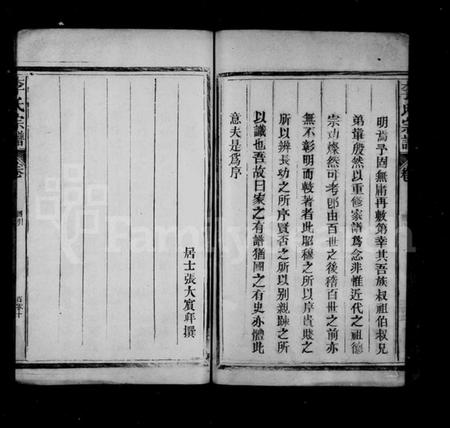 明焉予固無庸再數第幸其吾族叔祖伯叔兄
弟輩殷然以重修家譜爲念非惟近代之祖德
宗功燦然可考即由百世之後稽百世之前亦
無不彰明而較著者此昭穆之所以序貴賤之
所以辨長幼之所序賢否之所以別親踈之所
以識也吾故曰家之有譜猶國之有史亦體此
意夫是爲序
居士張大賔拜撰
李氏宗譜
卷
李氏宗譜
卷